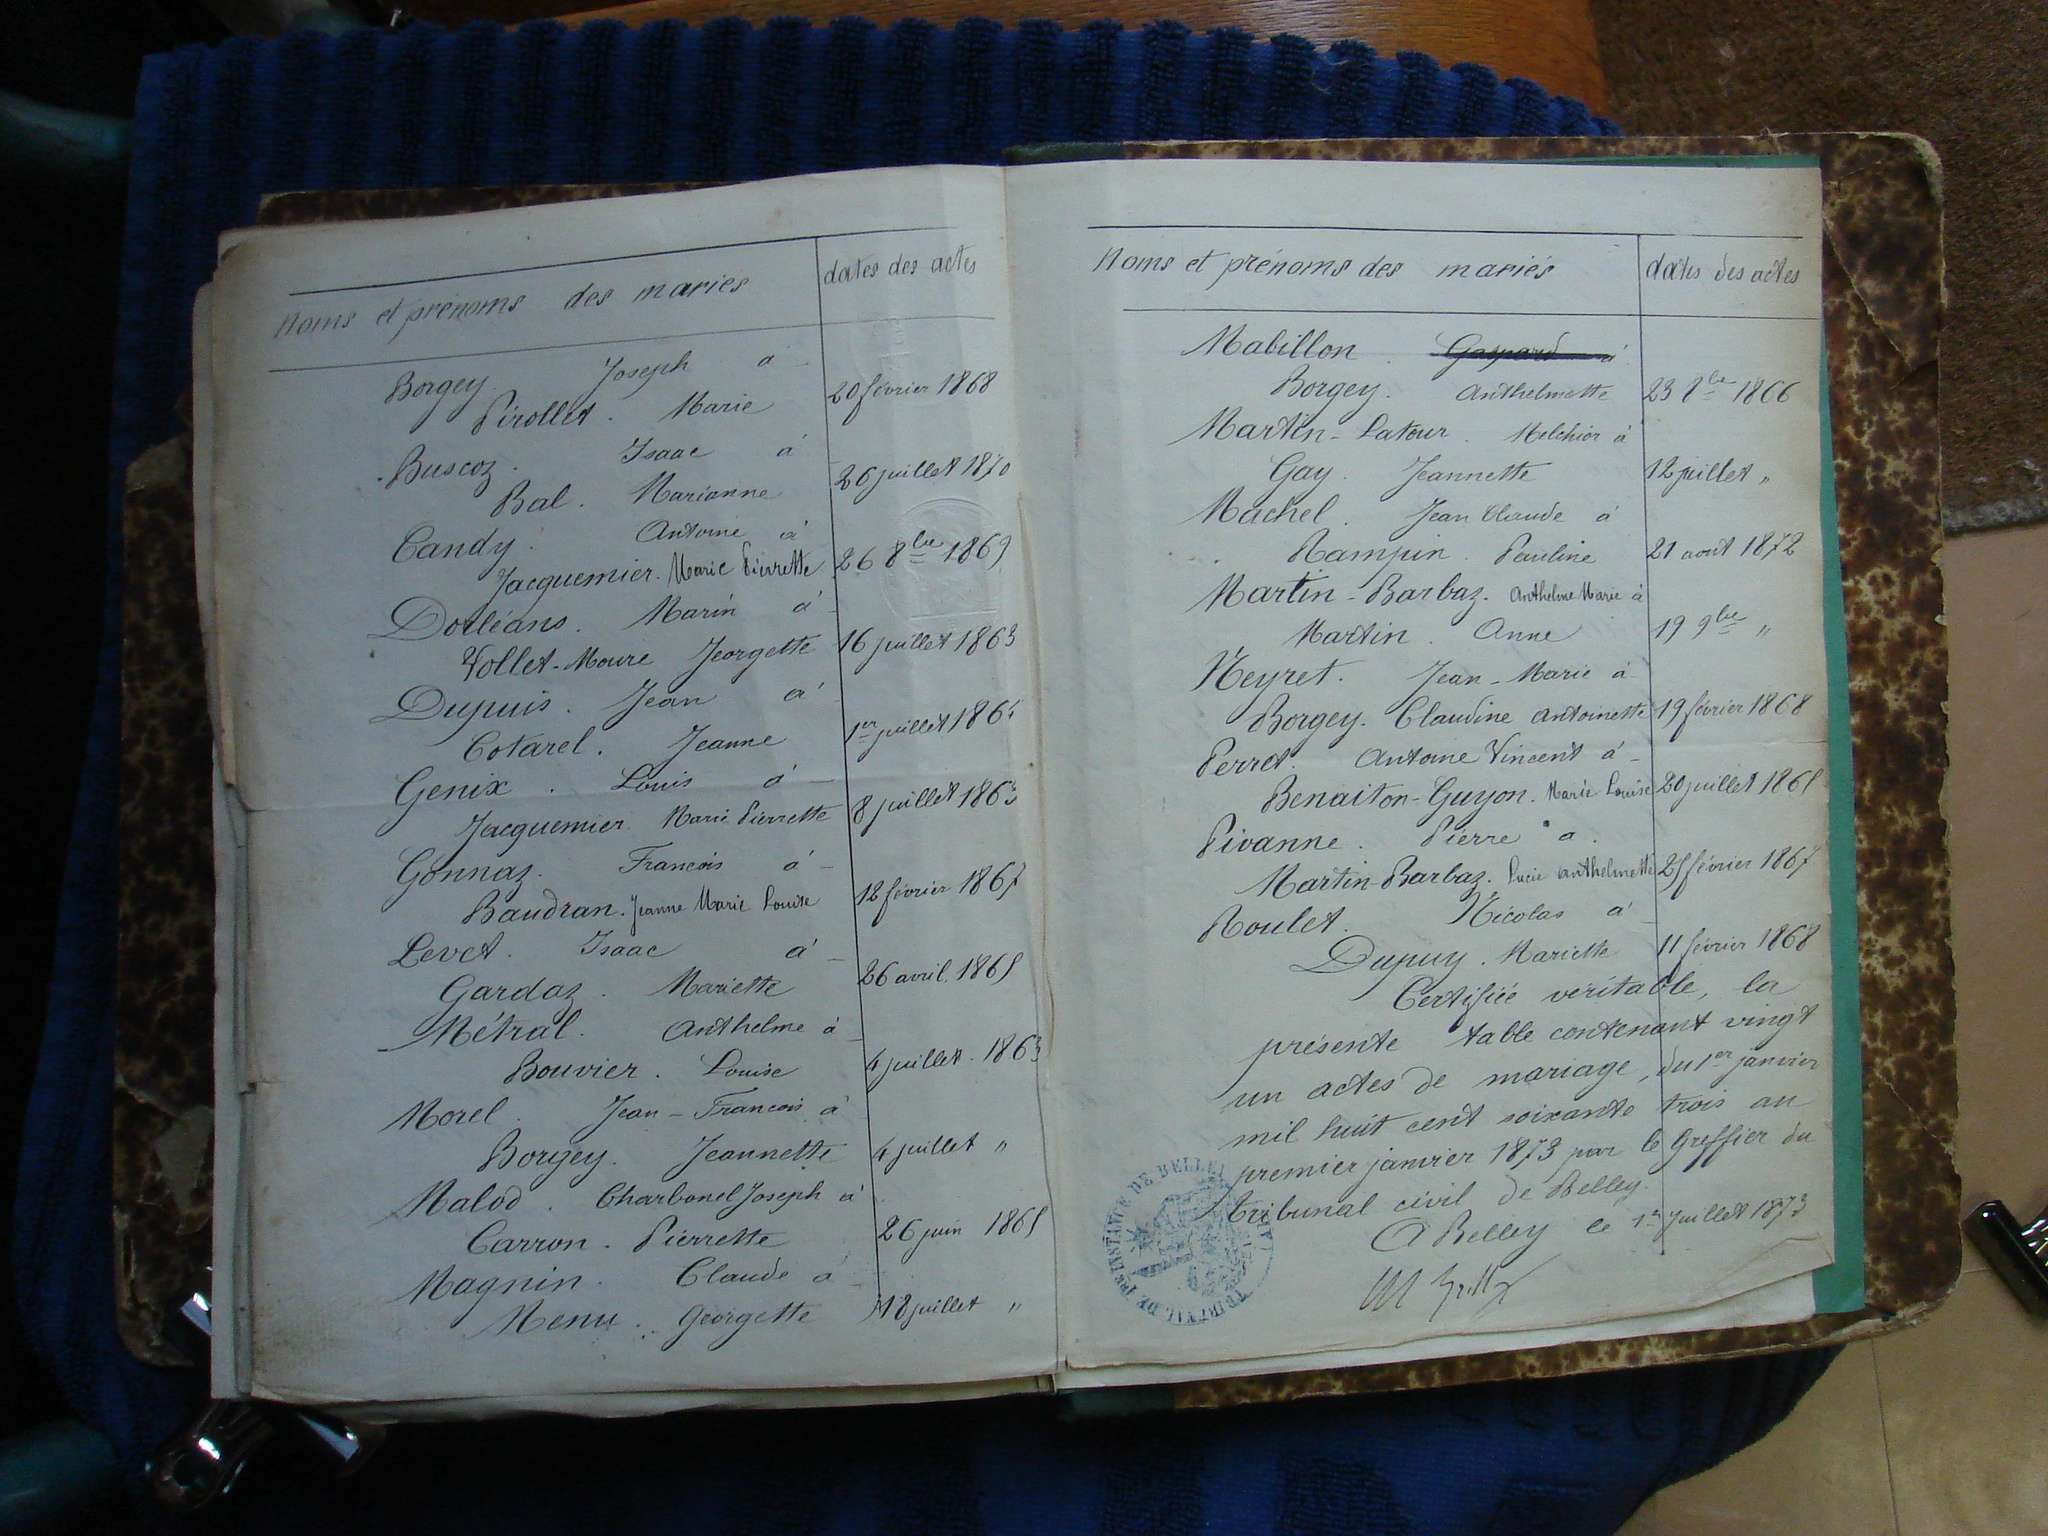 Noms et prénoms des mariés dates des actes
Borgey. Joseph à
Pirollet. Marie 20 février 1868
Buscoz. Isaac à
Bal. Marianne 26 juillet 1870
Candy. Antoine à
Jacquemier. Marie Pierrette 26 8bre 1869
Dorléans. Marin à
Vollet-Moure Jeorgette 16 juillet 1863
Dupuis. Jean à
Cotarel. Jeanne 1er juillet 1865
Genix. Louis à
Jacquemier Marie Pierrette 8 juillet 1863
Gonnaz. Francois à
Baudran. Jeanne Marie Louise 12 février 1867
Levet. Isaac à
Gardaz. Mariette 26 avril. 1865
Métral. Anthelme à
Bouvier. Louise 4 juillet. 1863
Morel. Jean-Francois à
Borgey. Jeannette 4 juillet "
Malod. Charbonel Joseph à
Carron. Pierrette 26 juin 1865
Magnin. Claude à
Menu. Georgette 18 juillet "
Noms et prénoms des mariés dates des actes
Mabillon. Gaspard à
Borgey. Anthelmette 23 8bre 1866
Martin-Latour. Melchior à
Gay. Jeannette 12 juillet "
Machel. Jean Claude à
Rampin. Pauline 21 aout 1872
Martin-Barbaz. Anthelme Marie à
Martin. Anne 19 9bre "
Neyret. Jean-Marie à
Borgey. Claudine Antoinette 19 février 1868
Perret. Antoine Vincent à
Benaiton-Guyon. Marie Louise 20 juillet 1865
Pivanne. Pierre a.
Martin-Barbaz. Lucie Anthelmette 25 février 1867
Roulet. Nicolas à
Dupuy. Mariette 11 février 1868
Certifiée véritable, la
présente table contenant vingt
un actes de mariage, du 1er janvier
mil huit cent soixante trois au
premier janvier 1873 par le Greffier du
tribunal civil de Belley.
A Belley le 1er Juillet 1873
TRIBUNAL DE 1RE INSTANCE DE BELLEY (AIN)